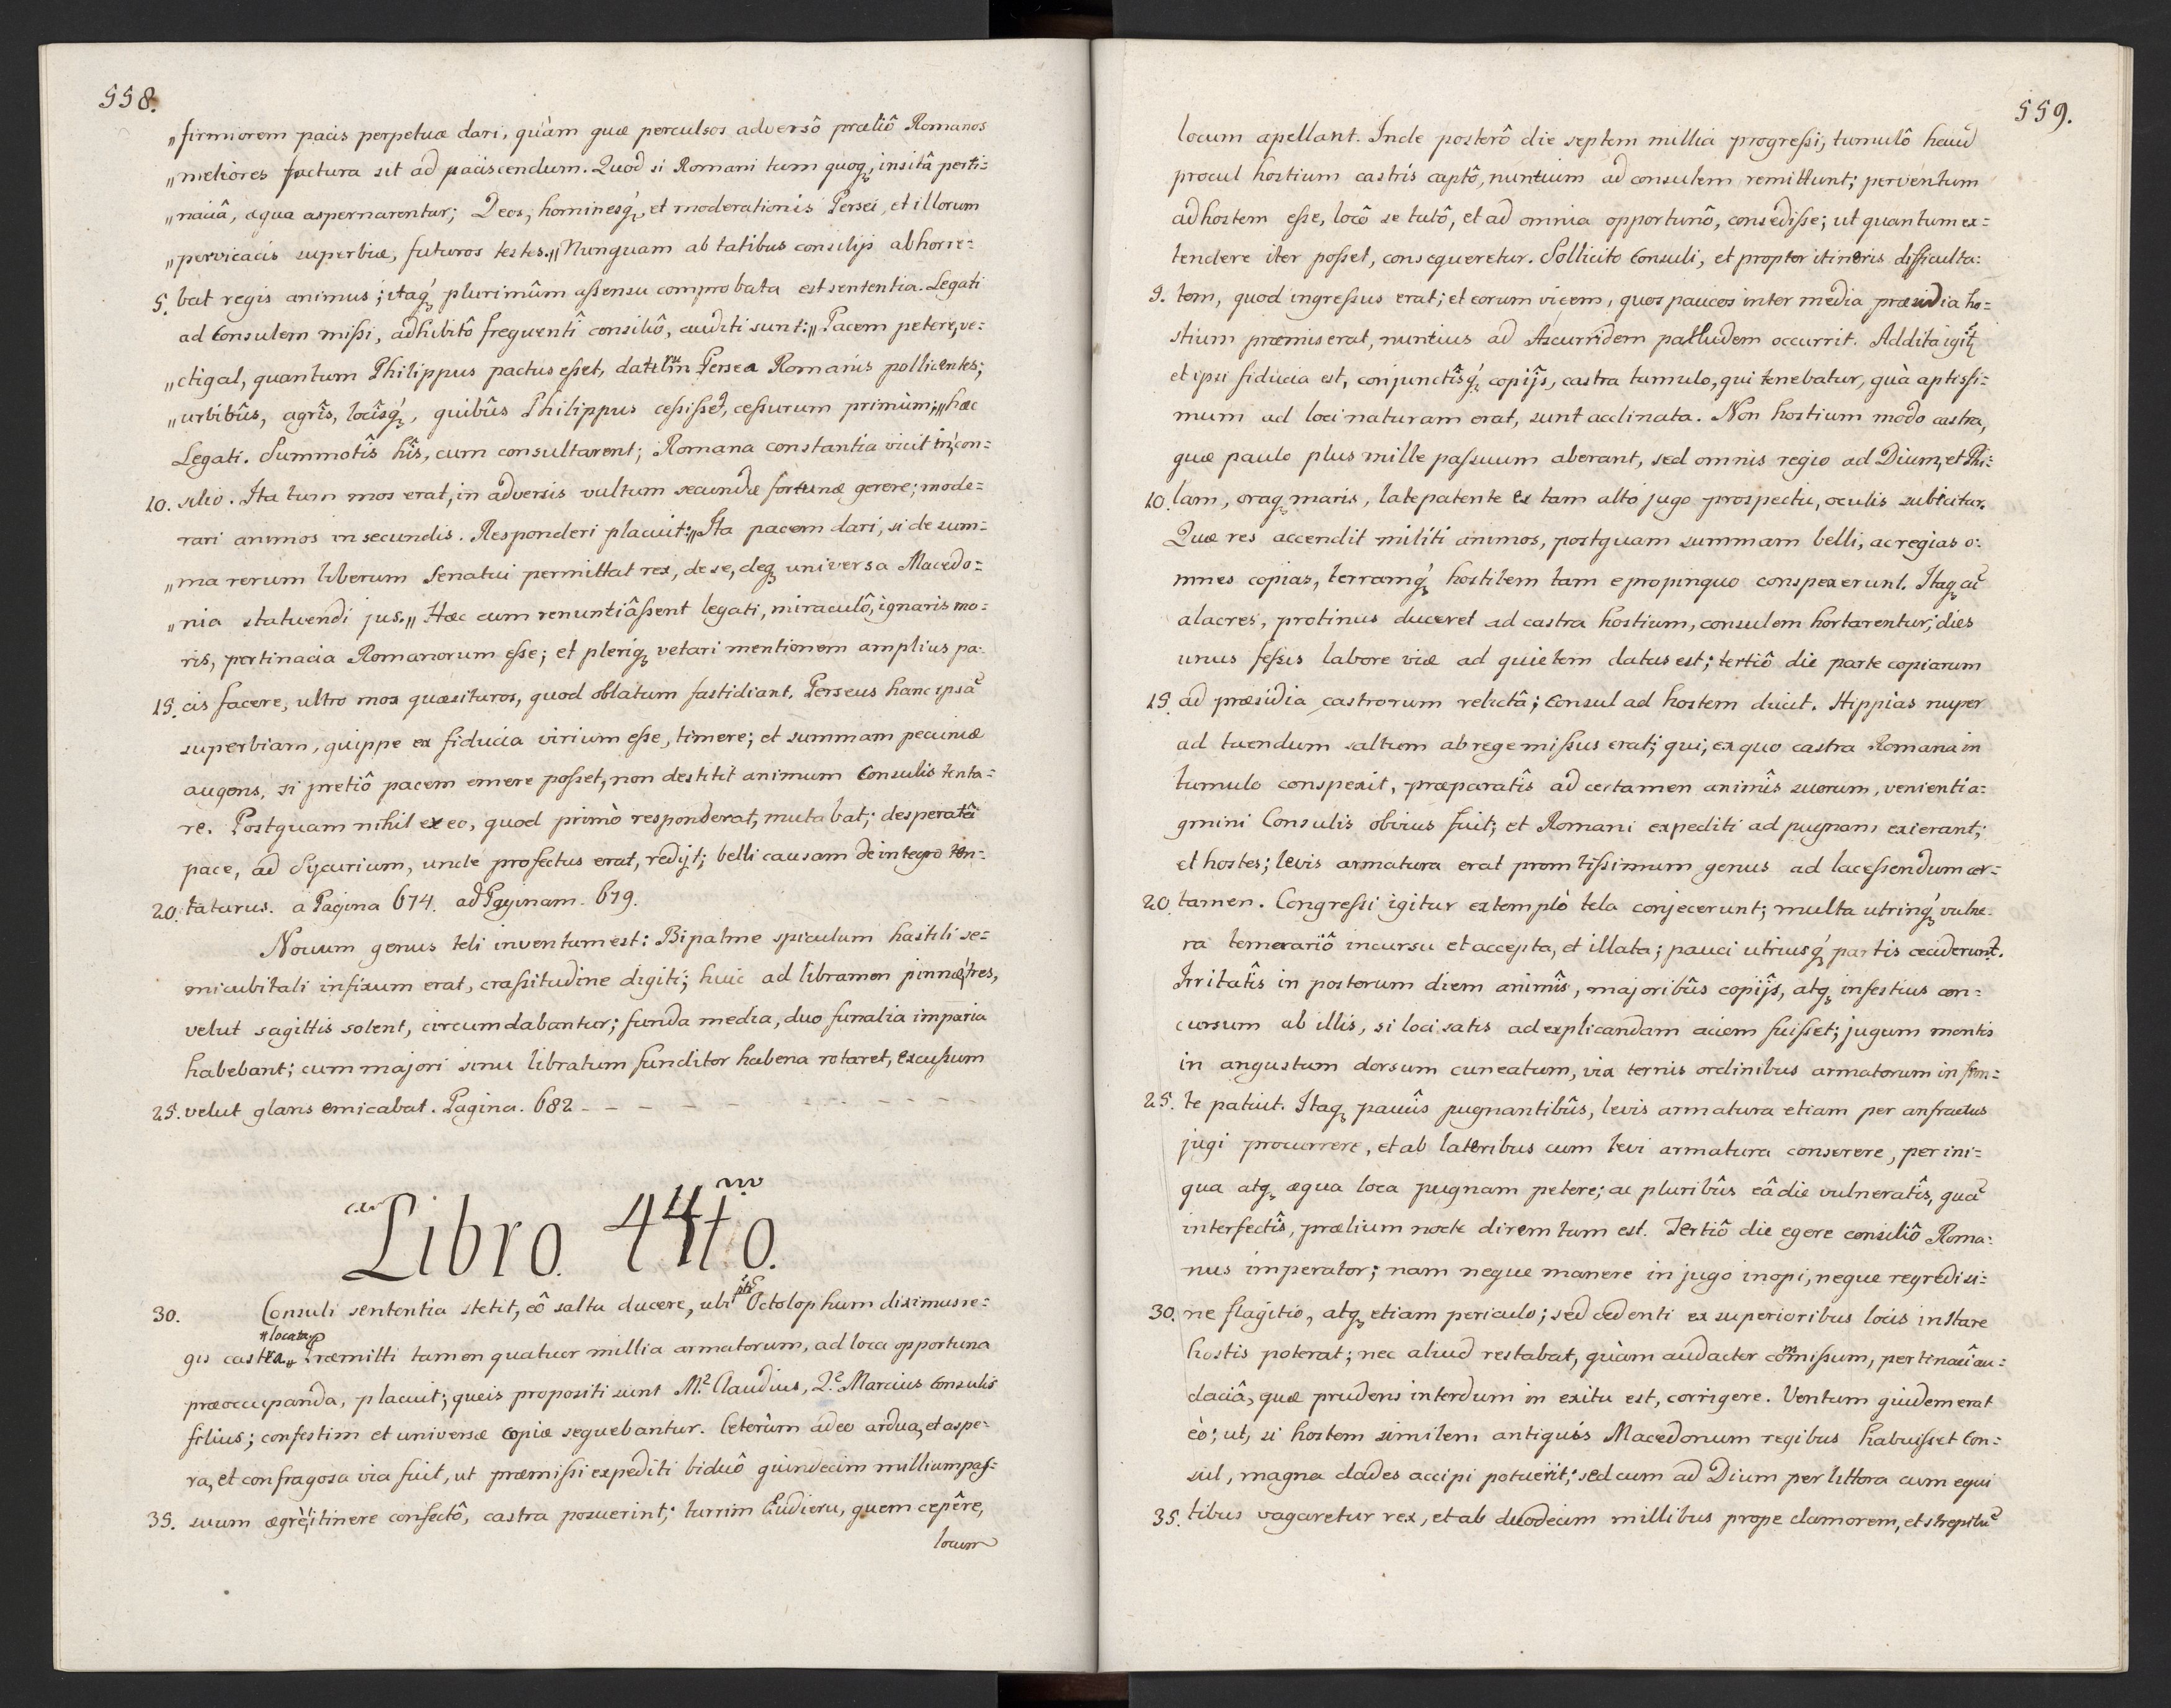 558.
„firmiorem pacis perpetuæ dari, quàm quæ perculsos adversô præliô Romanos
„meliores factura sit ad paciscendum. Quod si Romani tum quoq;, insitâ perti=
„naciâ, æqua aspernarentur; Deos, hominesq́;, et moderationis Persei, et illorum
„pervicacis superbiæ, futuros testes.„ Nunquam ab talibus consilijs abhorre=
5. bat regis animus; itaq́; plurimûm aßensu comprobata est sententia. Legati
ad Consulem mißi, adhibitô frequentî consiliô, auditi sunt:„ Pacem petere, ve=
„ctigal, quantum Philippus pactus eßet, daturũ Persea Romanis pollicentes;
„urbibûs, agrîs, locîsq́;, quibûs Philippus ceßißet, ceßurum primùm;„ hæc
Legati. Summotîs hîs, cum consultarent; Romana constantia vicit in con=
10. silio. Ita tum mos erat, in adversis vultum secundæ fortunæ gerere; mode=
rari animos in secundis. Responderi placuit:„ Ita pacem dari, si de sum=
„ma rerum liberum Senatui permittat rex, de se, deq; universa Macedo=
„nia statuendi jus.„ Hæc cum renuntiâßent legati, miraculô, ignaris mo=
ris, pertinacia Romanorum eße; et pleriq; vetari mentionem amplius pa=
15. cis facere, ultro mox quæsituros, quod oblatum fastidiant. Perseus hanc ipsã
superbiam, quippe ex fiducia virium eße, timere; et summam pecuniæ
augens, si pretiô pacem emere poßet, non destitit animum Consulis tenta=
re. Postquam nihil ex eo, quod primò responderat, mutabat; desperatâ
pace, ad Sycurium, unde profectus erat, redijt; belli causam de integro ten=
20. taturus. a Pagina 674. ad Paginam. 679.
Novum genus teli inventum est: Bipalme spiculum hastili se=
micubitali infixum erat, craßitudine digiti; huic ad libramen pinnæ tres,
velut sagittis solent, circumdabantur; funda media, duo funalia imparia
habebant; cum majori sinu libratum funditor habena rotaret, excußum
25. velut glans emicabat. Pagina. 682 - - - - - - - - - -
ex Libro. 44to.
30. Consuli sententia stetit, eô saltu ducere, ubi pte Octolophum diximus re=
gis castra „locata„ Præmitti tamen quatuor millia armatorum, ad loca opportuna
præoccupanda, placuit; queis propositi sunt M.s Claudius, Q.s Marcius Consulis
filius; confestim et universæ copiæ sequebantur. Ceterùm adeo ardua, et aspe=
ra, et confragosa via fuit, ut præmißi expediti biduô quindecim millium paß=
35. suum ægrè, itinere confectô, castra posuerint; turrim Eudieru, quem cepêre,
locum
559.
locum apellant. Inde posterô die septem millia progreßi, tumulô haud
procul hostium castris captô, nuntium ad consulem remittunt; perventum
ad hostem eße, locô se tutô, et ad omnia opportunô, consediße; ut quantum ex=
tendere iter poßet, consequeretur. Sollicito Consuli, et propter itineris difficulta=
5. tem, quod ingreßus erat; et eorum vicem, quos paucos inter media præsidia ho=
stium præmiserat, nuntius ad Ascurridem palludem occurrit. Addita igit̃
et ipsi fiducia est, conjunctîsq́; copijs, castra tumulo, qui tenebatur, quà aptißi=
mum ad loci naturam erat, sunt acclinata. Non hostium modo castra,
quæ paulo plus mille paßuum aberant, sed omnis regio ad Dium, et Phi=
10. lam, oraq; maris, late patente ex tam alto jugo prospectu, oculis subicitur.
Quæ res accendit militi animos, postquam summam belli, ac regias o=
mnes copias, terramq́; hostilem tam e propinquo conspexerunt. Itaq; cũ
alacres, protinus duceret ad castra hostium, consulem hortarentur; dies
unus feßis labore viæ ad quietem datus est; tertiô die parte copiarum
15. ad præsidia castrorum relictâ; Consul ad hostem ducit. Hippias nuper
ad tuendum saltum ab rege mißus erat; qui, ex quo castra Romana in
tumulo conspexit, præparatîs ad certamen animîs suorum, venienti a=
gmini Consulis obvius fuit; et Romani expediti ad pugnam exierant;
et hostes; levis armatura erat promtißimum genus ad laceßendum cer=
20. tamen. Congreßi igitur extemplò tela conjecerunt; multa utrinq́; vulne=
ra temerariô incursu et accepta, et illata; pauci utriusq́; partis ceciderunt.
Irritatîs in posterum diem animîs, majoribûs copijs, atq; infestius con=
cursum ab illis, si loci satis ad explicandam aciem fuißet; jugum montis
in angustum dorsum cuneatum, vix ternis ordinibus armatorum in fron=
25. te patuit. Itaq; paucîs pugnantibûs, levis armatura etiam per anfractus
jugi procurrere, et ab lateribus cum levi armatura conserere, per ini=
qua atq; æqua loca pugnam petere; ac pluribûs eâ die vulneratîs, quã
interfectîs, prælium nocte diremtum est. Tertiô die egere consiliô Roma=
nus imperator; nam neque manere in jugo inopi, neque regredi si=
30. ne flagitio, atq; etiam periculo; sed cedenti ex superioribus locis instare
hostis poterat; nec aliud restabat, quàm audacter commißum, pertinaci au=
daciâ, quæ prudens interdum in exitu est, corrigere. Ventum quidem erat
eò; ut, si hostem similem antiquis Macedonum regibus habuißet Con=
sul, magna clades accipi potuerit; sed cum ad Dium per littora cum equi
35. tibus vagaretur rex, et ab duodecim millibus prope clamorem, et strepitũ